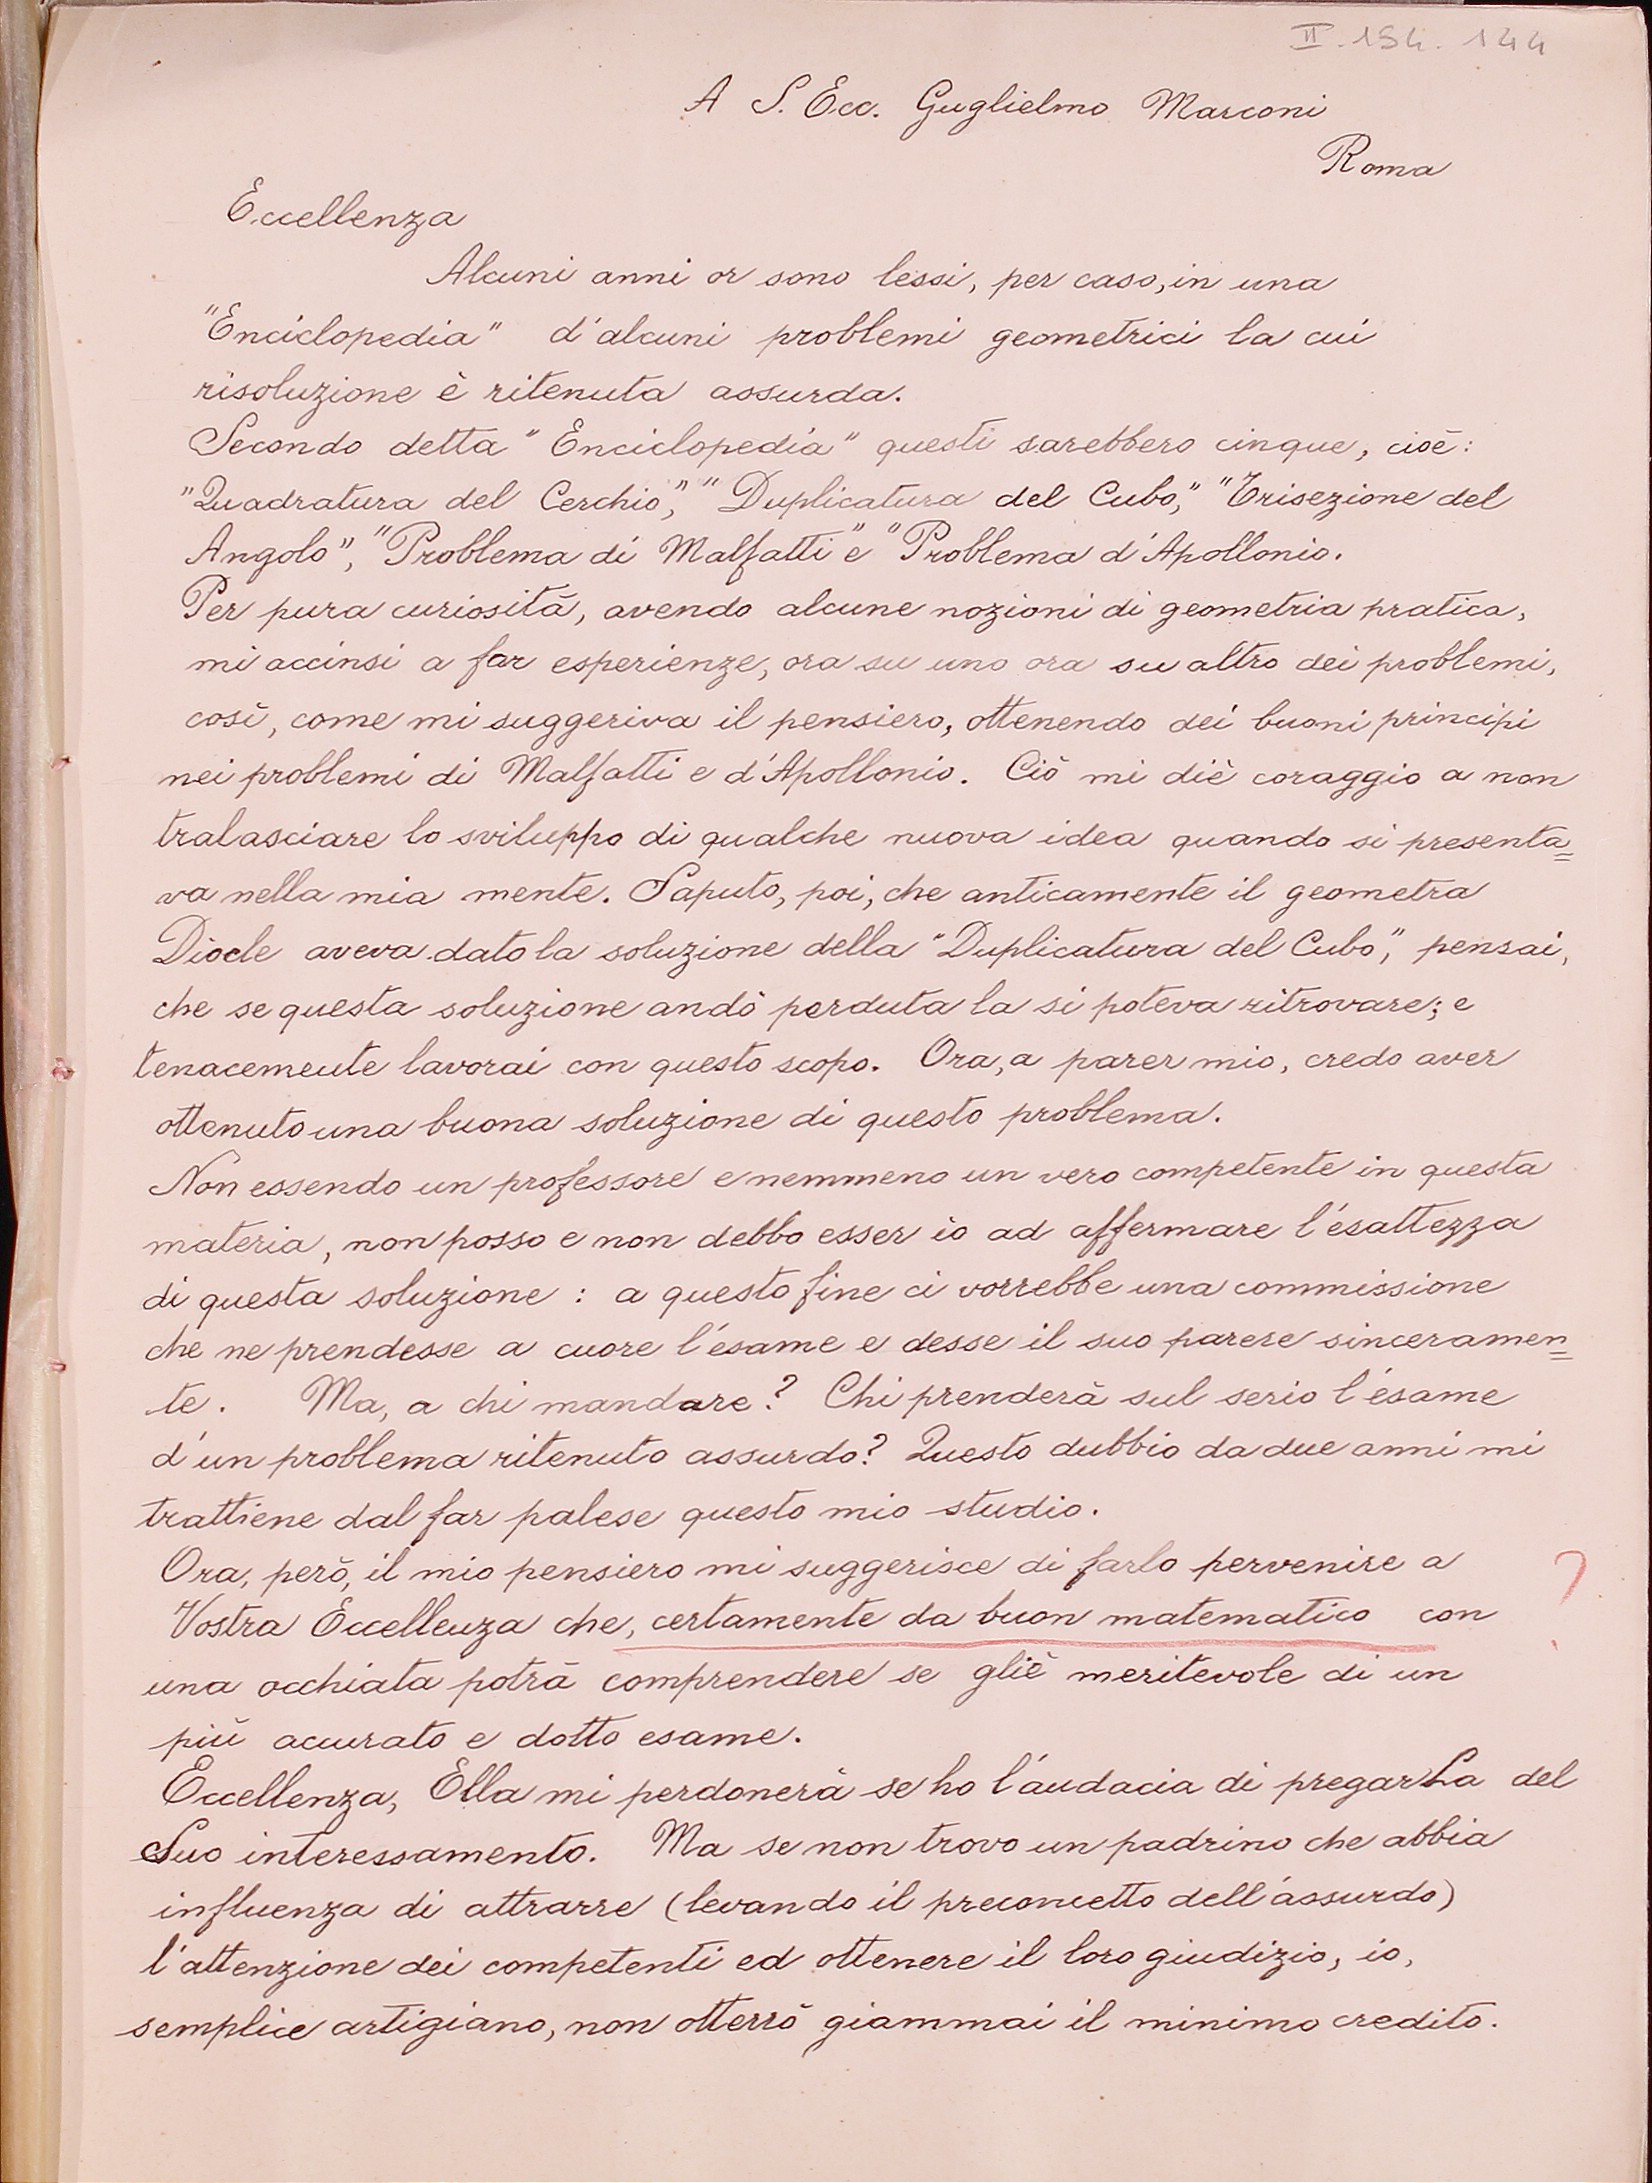 II. 154. 144
A S. Ecc. Guglielmo Marconi
Roma
Eccellenza
Alcuni anni or sono lessi, per caso, in una
"Enciclopedia" d'alcuni problemi geometrici la cui
risoluzione è ritenuta assurda.
Secondo detta "Enciclopedia" questi sarebbero cinque, cioè:
"Quadratura del Cerchio", "Duplicatura del Cubo", "Trisezione del
Angolo", "Problema di Malfatti" e "Problema d'Apollonio.
Per pura curiosità, avendo alcune nozioni di geometria pratica,
mi accinsi a far esperienze, ora su uno ora su altro dei problemi,
così, come mi suggeriva il pensiero, ottenendo dei buoni principi
nei problemi di Malfatti e d'Apollonio. Ciò mi diè coraggio a non
tralasciare lo sviluppo di qualche nuova idea quando si presenta=
va nella mia mente. Saputo, poi, che anticamente il geometra
Diocle aveva dato la soluzione della "Duplicatura del Cubo", pensai,
che se questa soluzione andò perduta la si poteva ritrovare; e
tenacemente lavorai con questo scopo. Ora, a parer mio, credo aver
ottenuto una buona soluzione di questo problema.
Non essendo un professore e nemmeno un vero competente in questa
materia, non posso e non debbo esser io ad affermare l'esattezza
di questa soluzione: a questo fine ci vorrebbe una commissione
che ne prendesse a cuore l'esame e desse il suo parere sinceramen=
te. Ma, a chi mandare? Chi prenderà sul serio l'esame
d'un problema ritenuto assurdo? Questo dubbio da due anni mi
trattiene dal far palese questo mio studio.
Ora, però, il mio pensiero mi suggerisce di farlo pervenire a
Vostra Eccellenza che, certamente da buon matematico con ?
una occhiata potrà comprendere se gliè meritevole di un
più accurato e dotto esame.
Eccellenza, Ella mi perdonerà se ho l'audacia di pregarLa del
Suo interessamento. Ma se non trovo un padrino che abbia
influenza di attrarre (levando il preconcetto dell'assurdo)
l'attenzione dei competenti ed ottenere il loro giudizio, io,
semplice artigiano, non otterrò giammai il minimo credito.